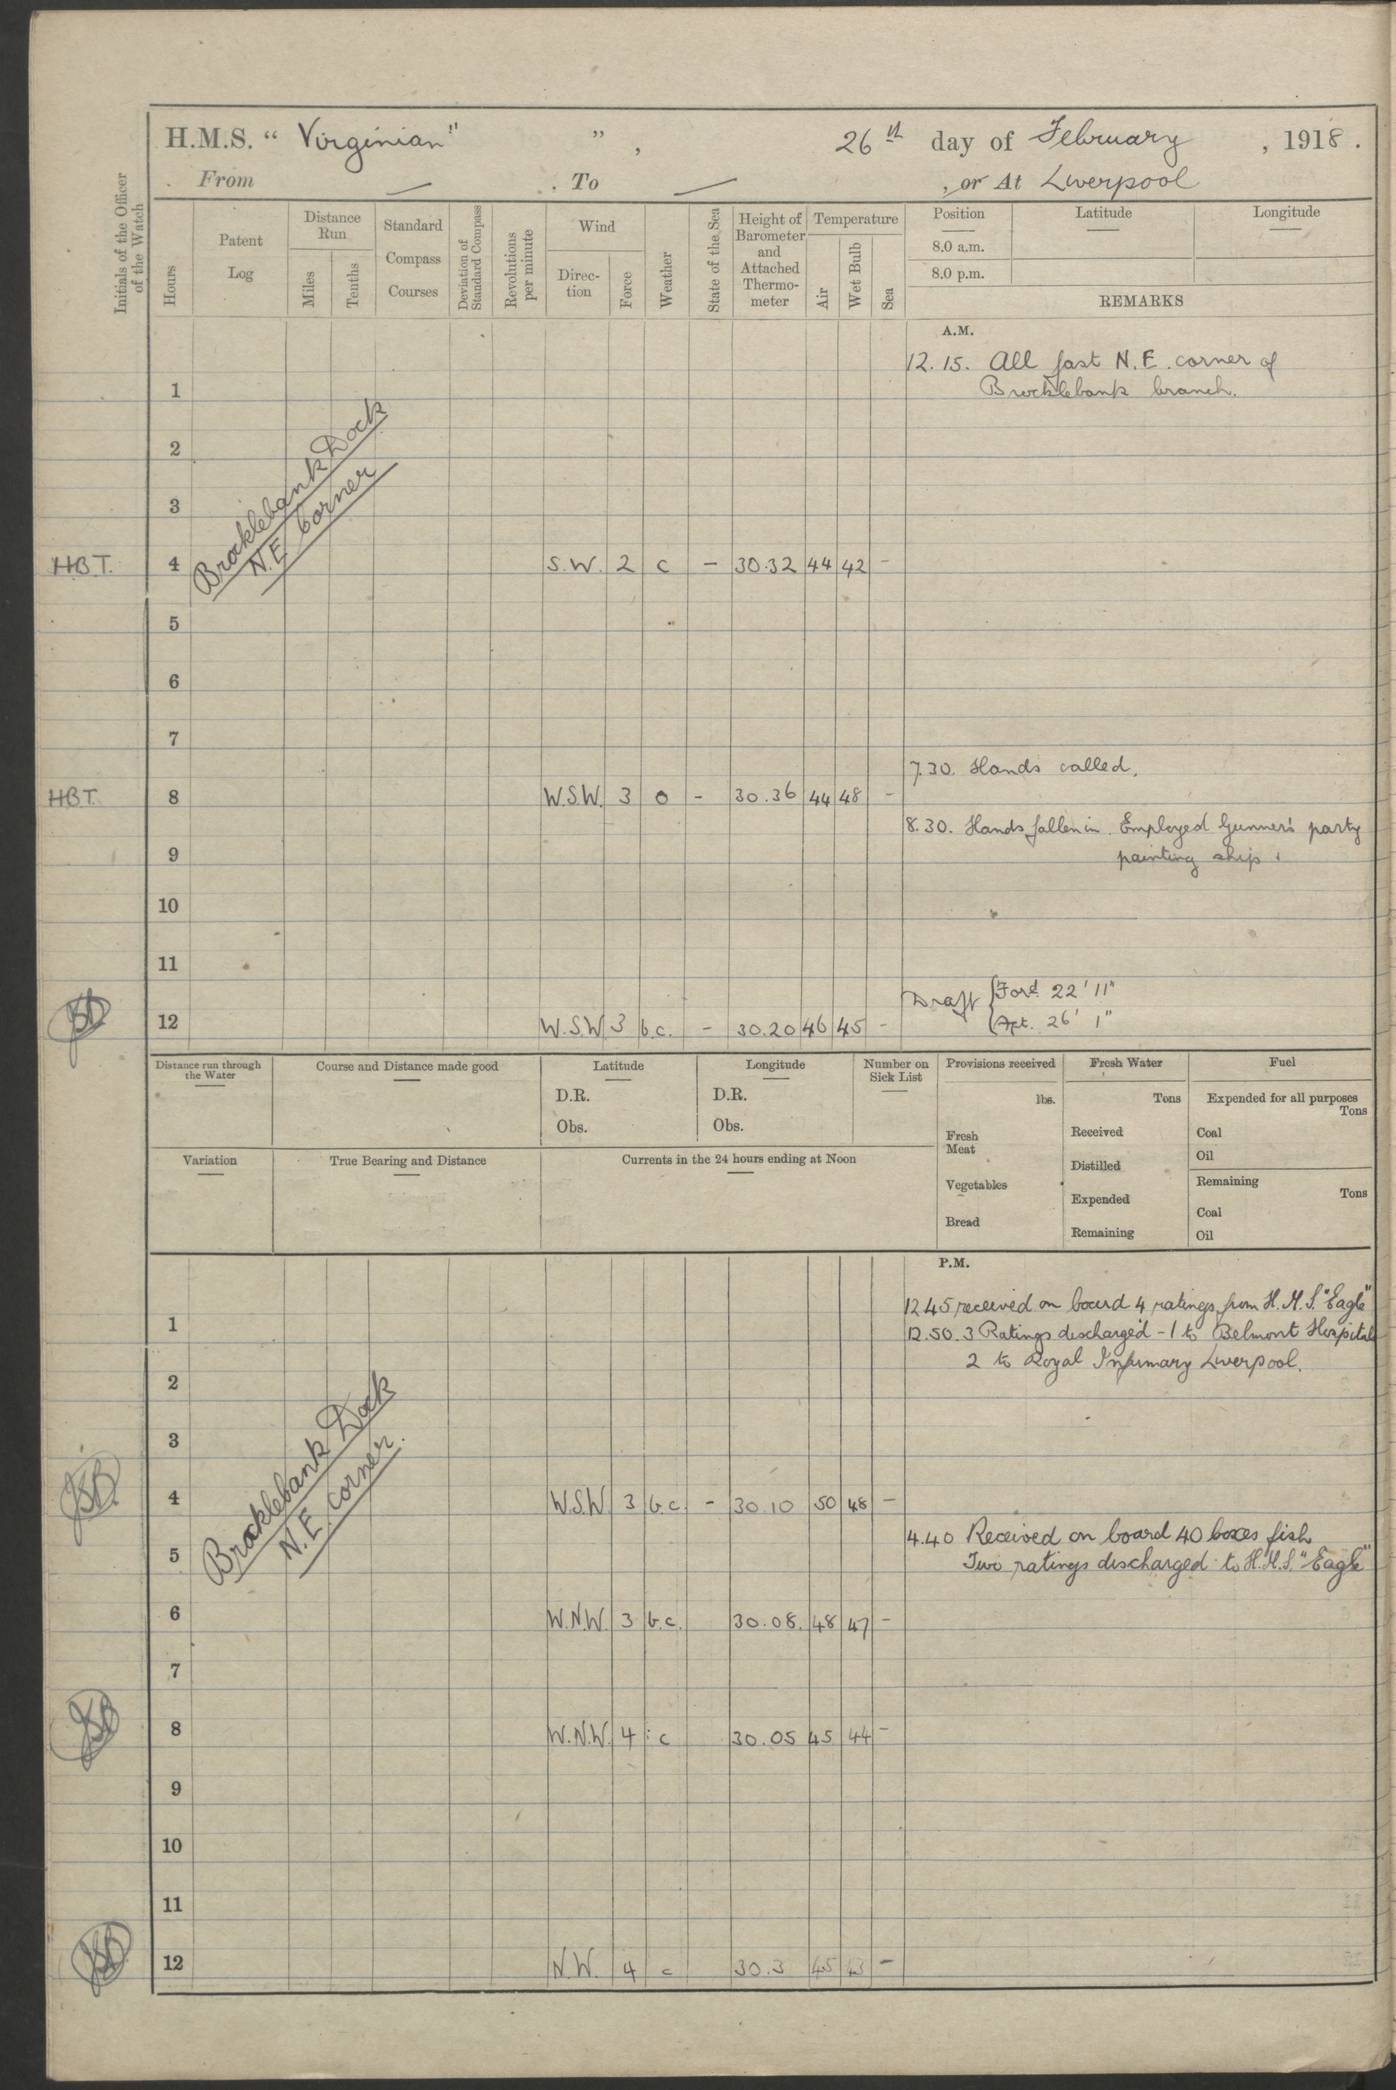 H.M.S. “ Virginian" ” , 26th day of February , 1918 .
From — . To — , or At Liverpool
Initials of the Officer of the Watch
Hours
Patent Log
Distance Run
Miles
Tenths
Standard Compass Courses
Deviation of Standard Compass
Revolutions per minute
Wind
Direc-tion
Force
Weather
State of the Sea
Height of Barometer and Attached Thermo-meter
Temperature
Air
Wet Bulb
Sea
Position Latitude Longitude
8.0 a.m.
8.0 p.m.
REMARKS
A.M.
12.15. All fast N.E. corner of
1 Brocklebank branch.
Brocklebank Dock
N.E. Corner
2
3
HBT. 4 S.W. 2 c – 30.32 44 42 –
5
6
7
7.30. Hands called.
HBT. 8 W.S.W. 3 o – 30.36 44 48 –
8.30. Hands fallen in. Employed Gunner's party
9 painting ship.
10
11
Draft { Ford 22' 11"
12 W.S.W 3 b.c. – 30.20 46 45 – Aft. 26' 1"
Distance run through the Water
Course and Distance made good
Latitude
D.R.
Obs.
Longitude
D.R.
Obs.
Number on Sick List
Provisions received
lbs.
Fresh Meat
Vegetables
Bread
Fresh Water
Tons
Received
Distilled
Expended
Remaining
Fuel
Expended for all purposes
Tons
Coal
Oil
Remaining
Tons
Coal
Oil
Variation
True Bearing and Distance
Currents in the 24 hours ending at Noon
P.M.
12.45 received on board 4 ratings from H.M.S. "Eagle"
1 12.50. 3 Ratings discharged – 1 to Belmont Hospital
2 to Royal Infirmary Liverpool.
2
Brocklebank Dock
N.E. corner.
3
4 W.S.W 3 b.c. – 30.10 50 48 –
4.40 Received on board 40 boxes fish
5 Two ratings discharged to H.M.S. "Eagle"
6 W.N.W. 3 b.c. 30.08. 48 47 –
7
8 W.N.W. 4 c 30.05 45 44 –
9
10
11
12 N.W. 4 c 30.3 45 43 –